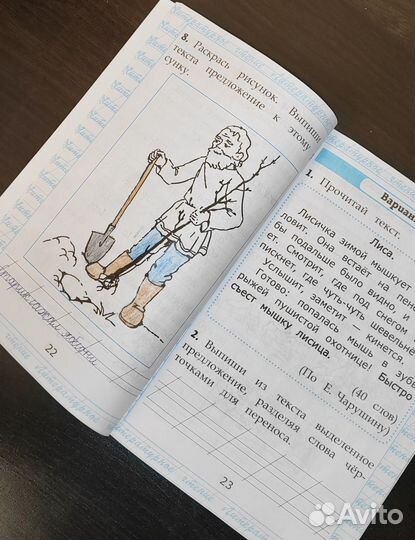 8. Раскрась рисунок. Выпиши из
текста предложение к этому
сунку.
22
Вариа
1. Прочитай текст.
Лиса.
Лисичка зимой мышкует —
ловит. Она встаёт на пе
бы подальше было видно, и
ет. Смотрит, где под снегом
пискнет, где чуть-чуть шевельнё
Услышит, заметит — кинется.
готово: попалась мышь в зуб
рыжей пушистой охотнице! Быстро
съест мышку лисица.
(40 слов)
(По Е. Чарушину)
2. Выпиши из текста выделенное
предложение, разделяя слова чёр-
точками для переноса.
23
Avito